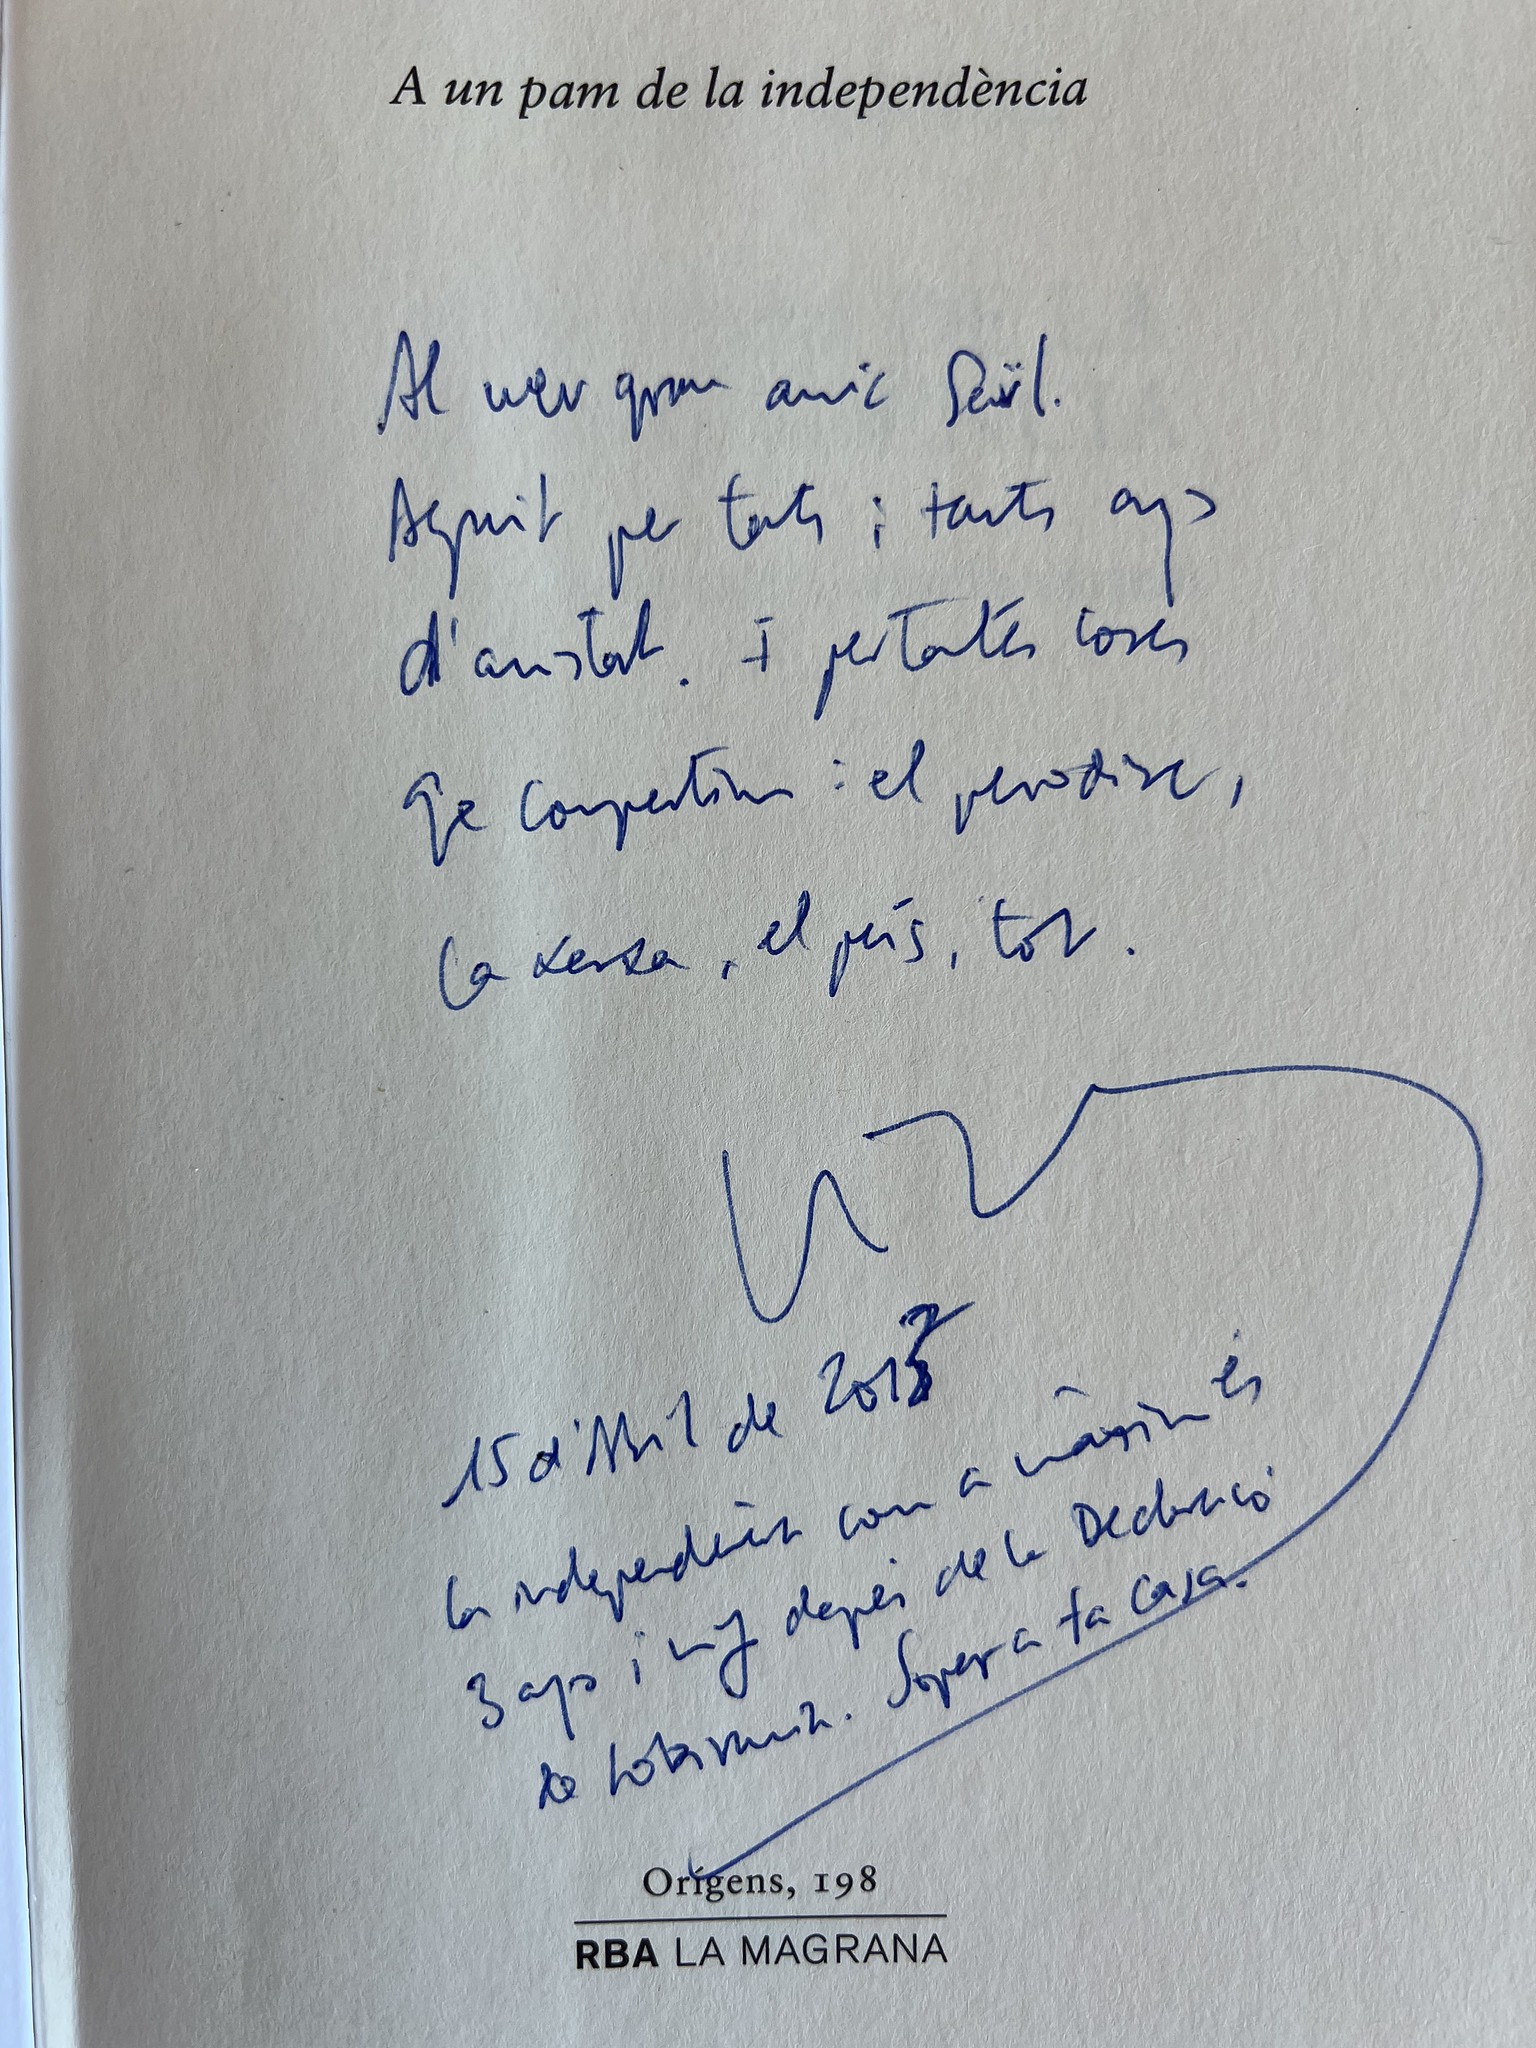 A un pam de la independència
Al meu gran amic Saül.
Agraït per tants i tants anys
d'amistat. I per tantes coses
que compartim: el periodisme,
la xarxa, el país, tot.
15 d'Abril de 2013
la independència com a màxim és
3 anys i mig després de la Declaració
de Sobirania. Sopar a ta casa.
Orígens, 198
RBA LA MAGRANA